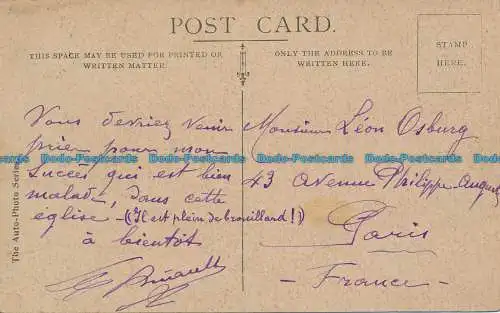 POST CARD.
THIS SPACE MAY BE USED FOR PRINTED OR
WRITTEN MATTER.
ONLY THE ADDRESS TO BE
WRITTEN HERE.
STAMP
HERE.
The Auto-Photo Series
Vous devriez venir
prier pour mon
succès qui est bien
malade, dans cette
eglise - (Il est plein de brouillard!)
à bientôt
Monsieur Léon Osburg
43 avenue Philippe-Auguste
Paris
- France -
Dodo-Postcards Dodo-Postcards Dodo-Postcards Dodo-Postcards